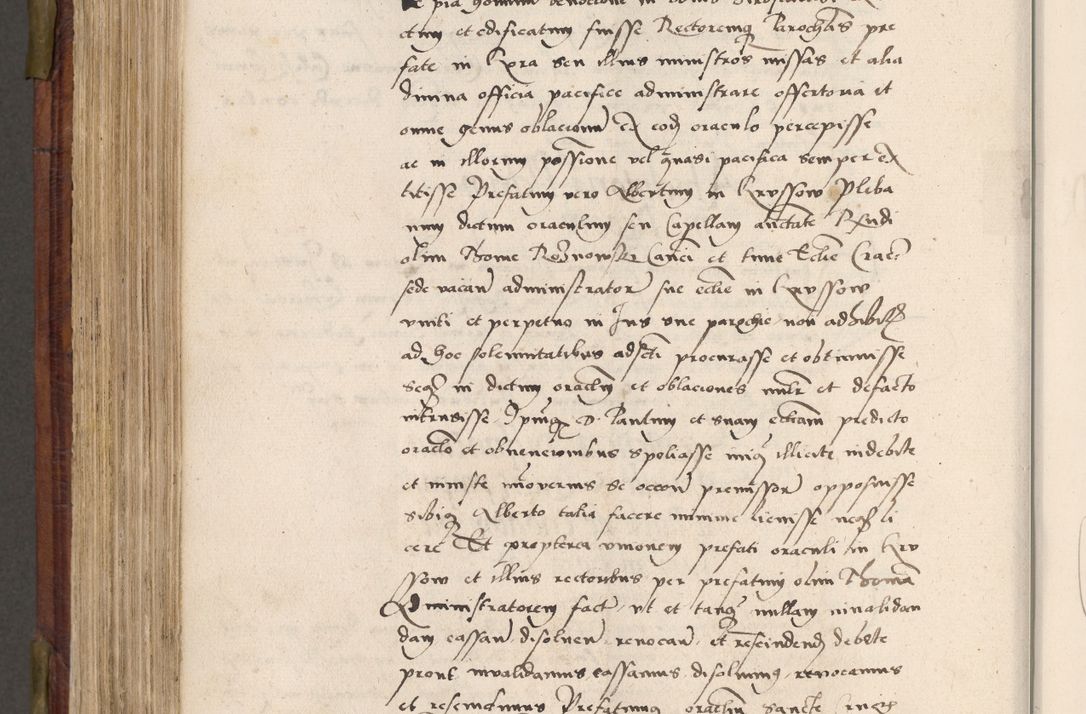 ctum et edificatum fuisse Rectoremq Parochialis pre
fate in Kxra seu illius ministros missas et alia
diuina officia pacifice administrare offertoria et
omne genus oblacionum ex eod oraculo percepisse
ac in illorum possione vel quasi pacifica semper ex
titisse Prefatum vero Albertum in Kryssow Pleba
num dictum oraculum seu Capellam auctate Rndi
olim Thome Roznowski Canci et tunc Eclie Crac
sede vacan administrator sue eclie in Kryssow
vniti et perpetuo in Jus sue parochie non adhibitis
ad hoc solennitatibus ad procurasse et obtinuisse
seq in dictum oraclm et oblaciones et defacto
intrusisse Ipmq D. Paulum et suam ecliam predicto
oraclo et obuencionibus spoliasse iniq illicite indebite
et iniuste se occon premissor opposuisse
sibiq Alberto talia facere minime licuisse neq li
cere Et propterea vnionem prefati oraculi in Kry
ssow et illius rectoribus per prefatum olim Thomam
Administratorem fact vt et tanq nullam inualidan
dam cassan disoluen reuocan et rescindend debite
prout inualidamus cassamus disoluimus reuocamus
et rescindimus Prefatumq oraclum sancte Crucis